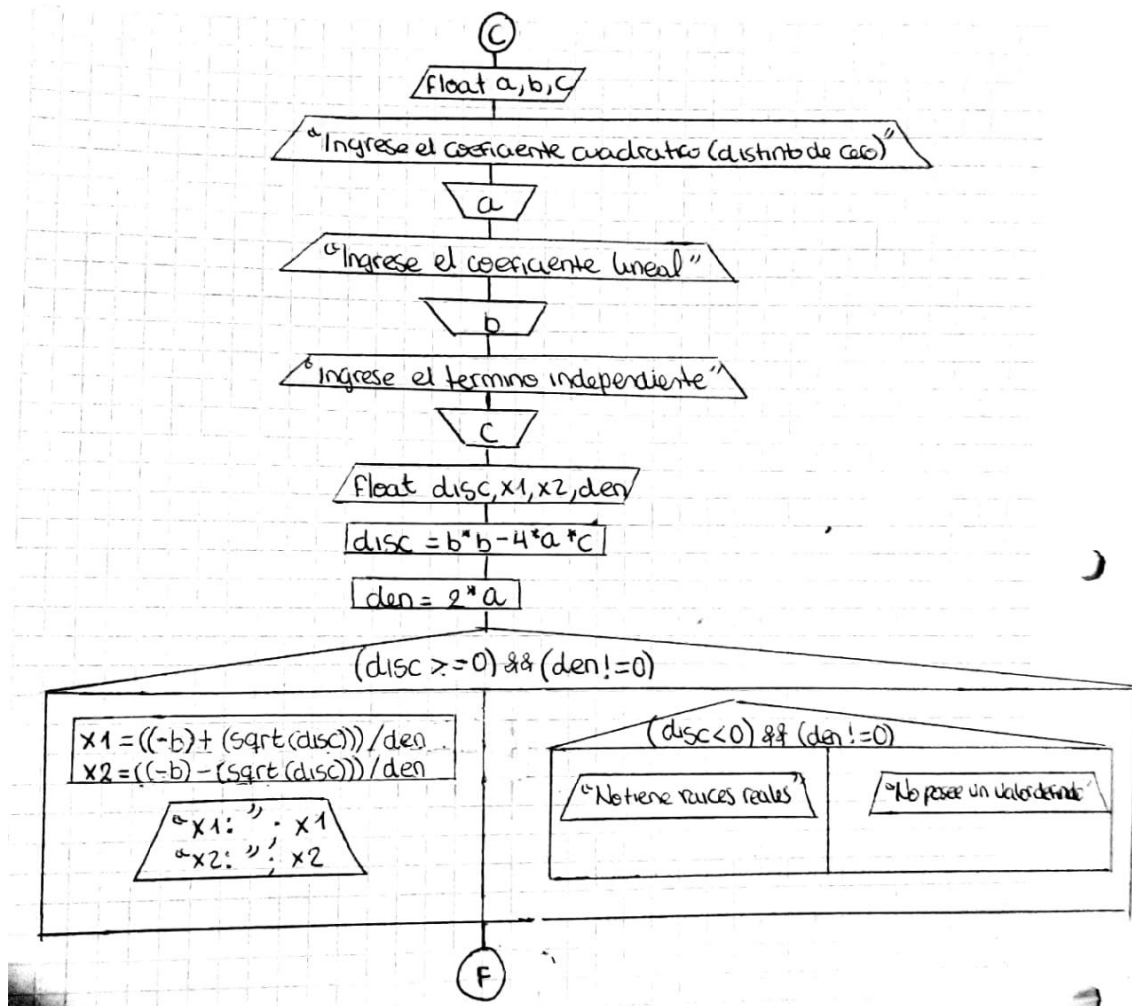 C
float a, b, c
"Ingrese el coeficiente cuadratico (distinto de cero)"
a
"Ingrese el coeficiente lineal"
b
"Ingrese el termino independiente"
c
float disc, x1, x2, den
disc = b*b-4*a*c
den = 2*a
(disc >=0) && (den!=0)
x1 = ((-b)+(sqrt(disc)))/den
x2 = ((-b)-(sqrt(disc)))/den
"x1: ", x1
"x2: ", x2
(disc<0) && (den!=0)
"No tiene raices reales"
"No posee un valor definido"
F